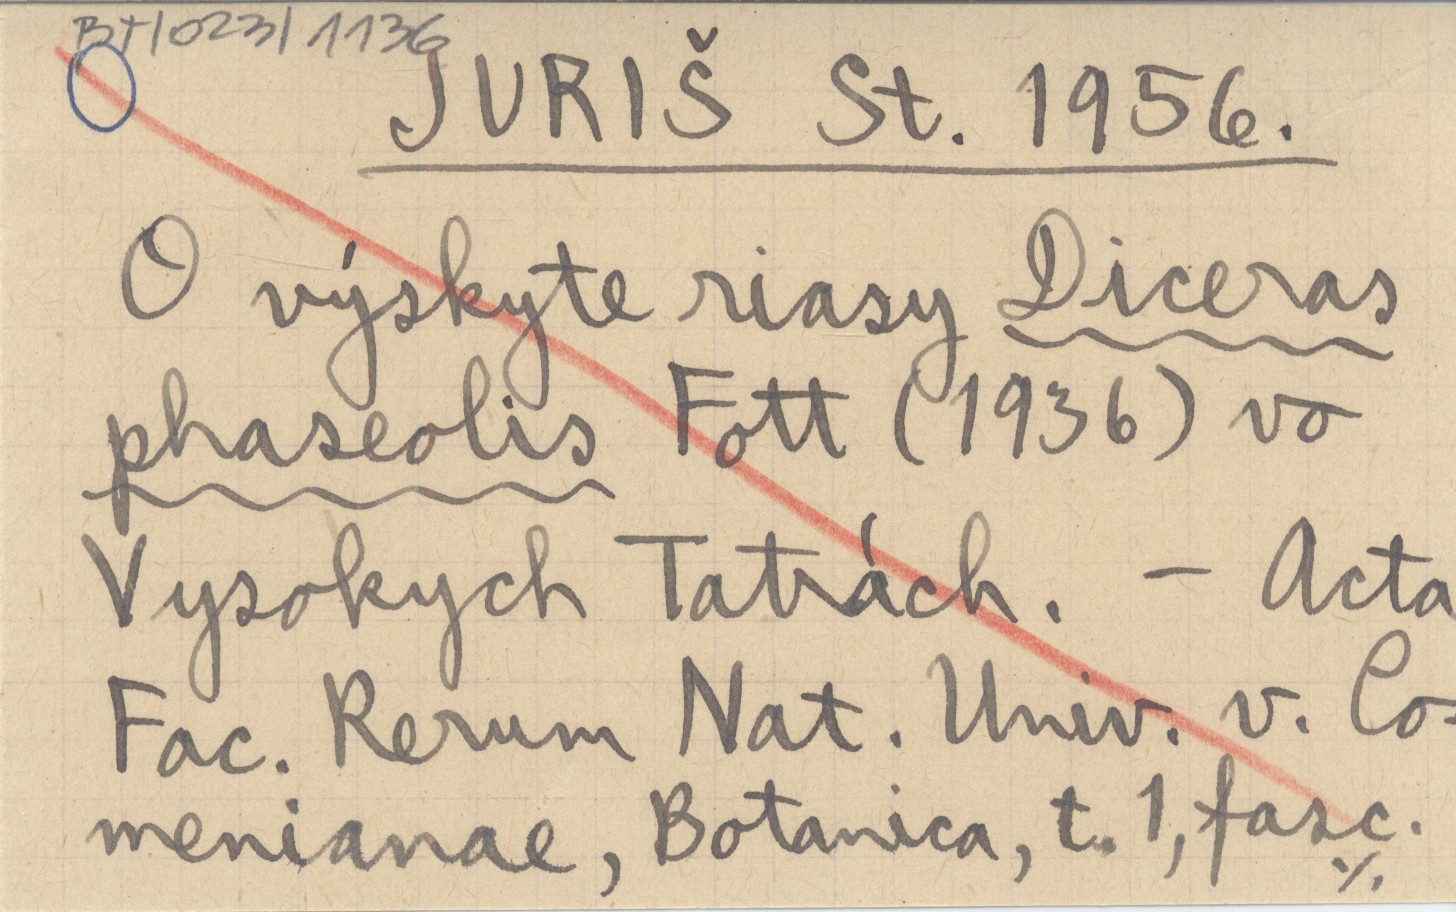 BT/023/1136
JURIŠ St. 1956.
O výskyte riasy Diceras
phaseolis Fott (1936) vo
Vysokych Tatrách. – Acta
Fac. Rerum Nat. Univ. v. Co-
menianae, Botanica, t. 1, fasc.
·/.